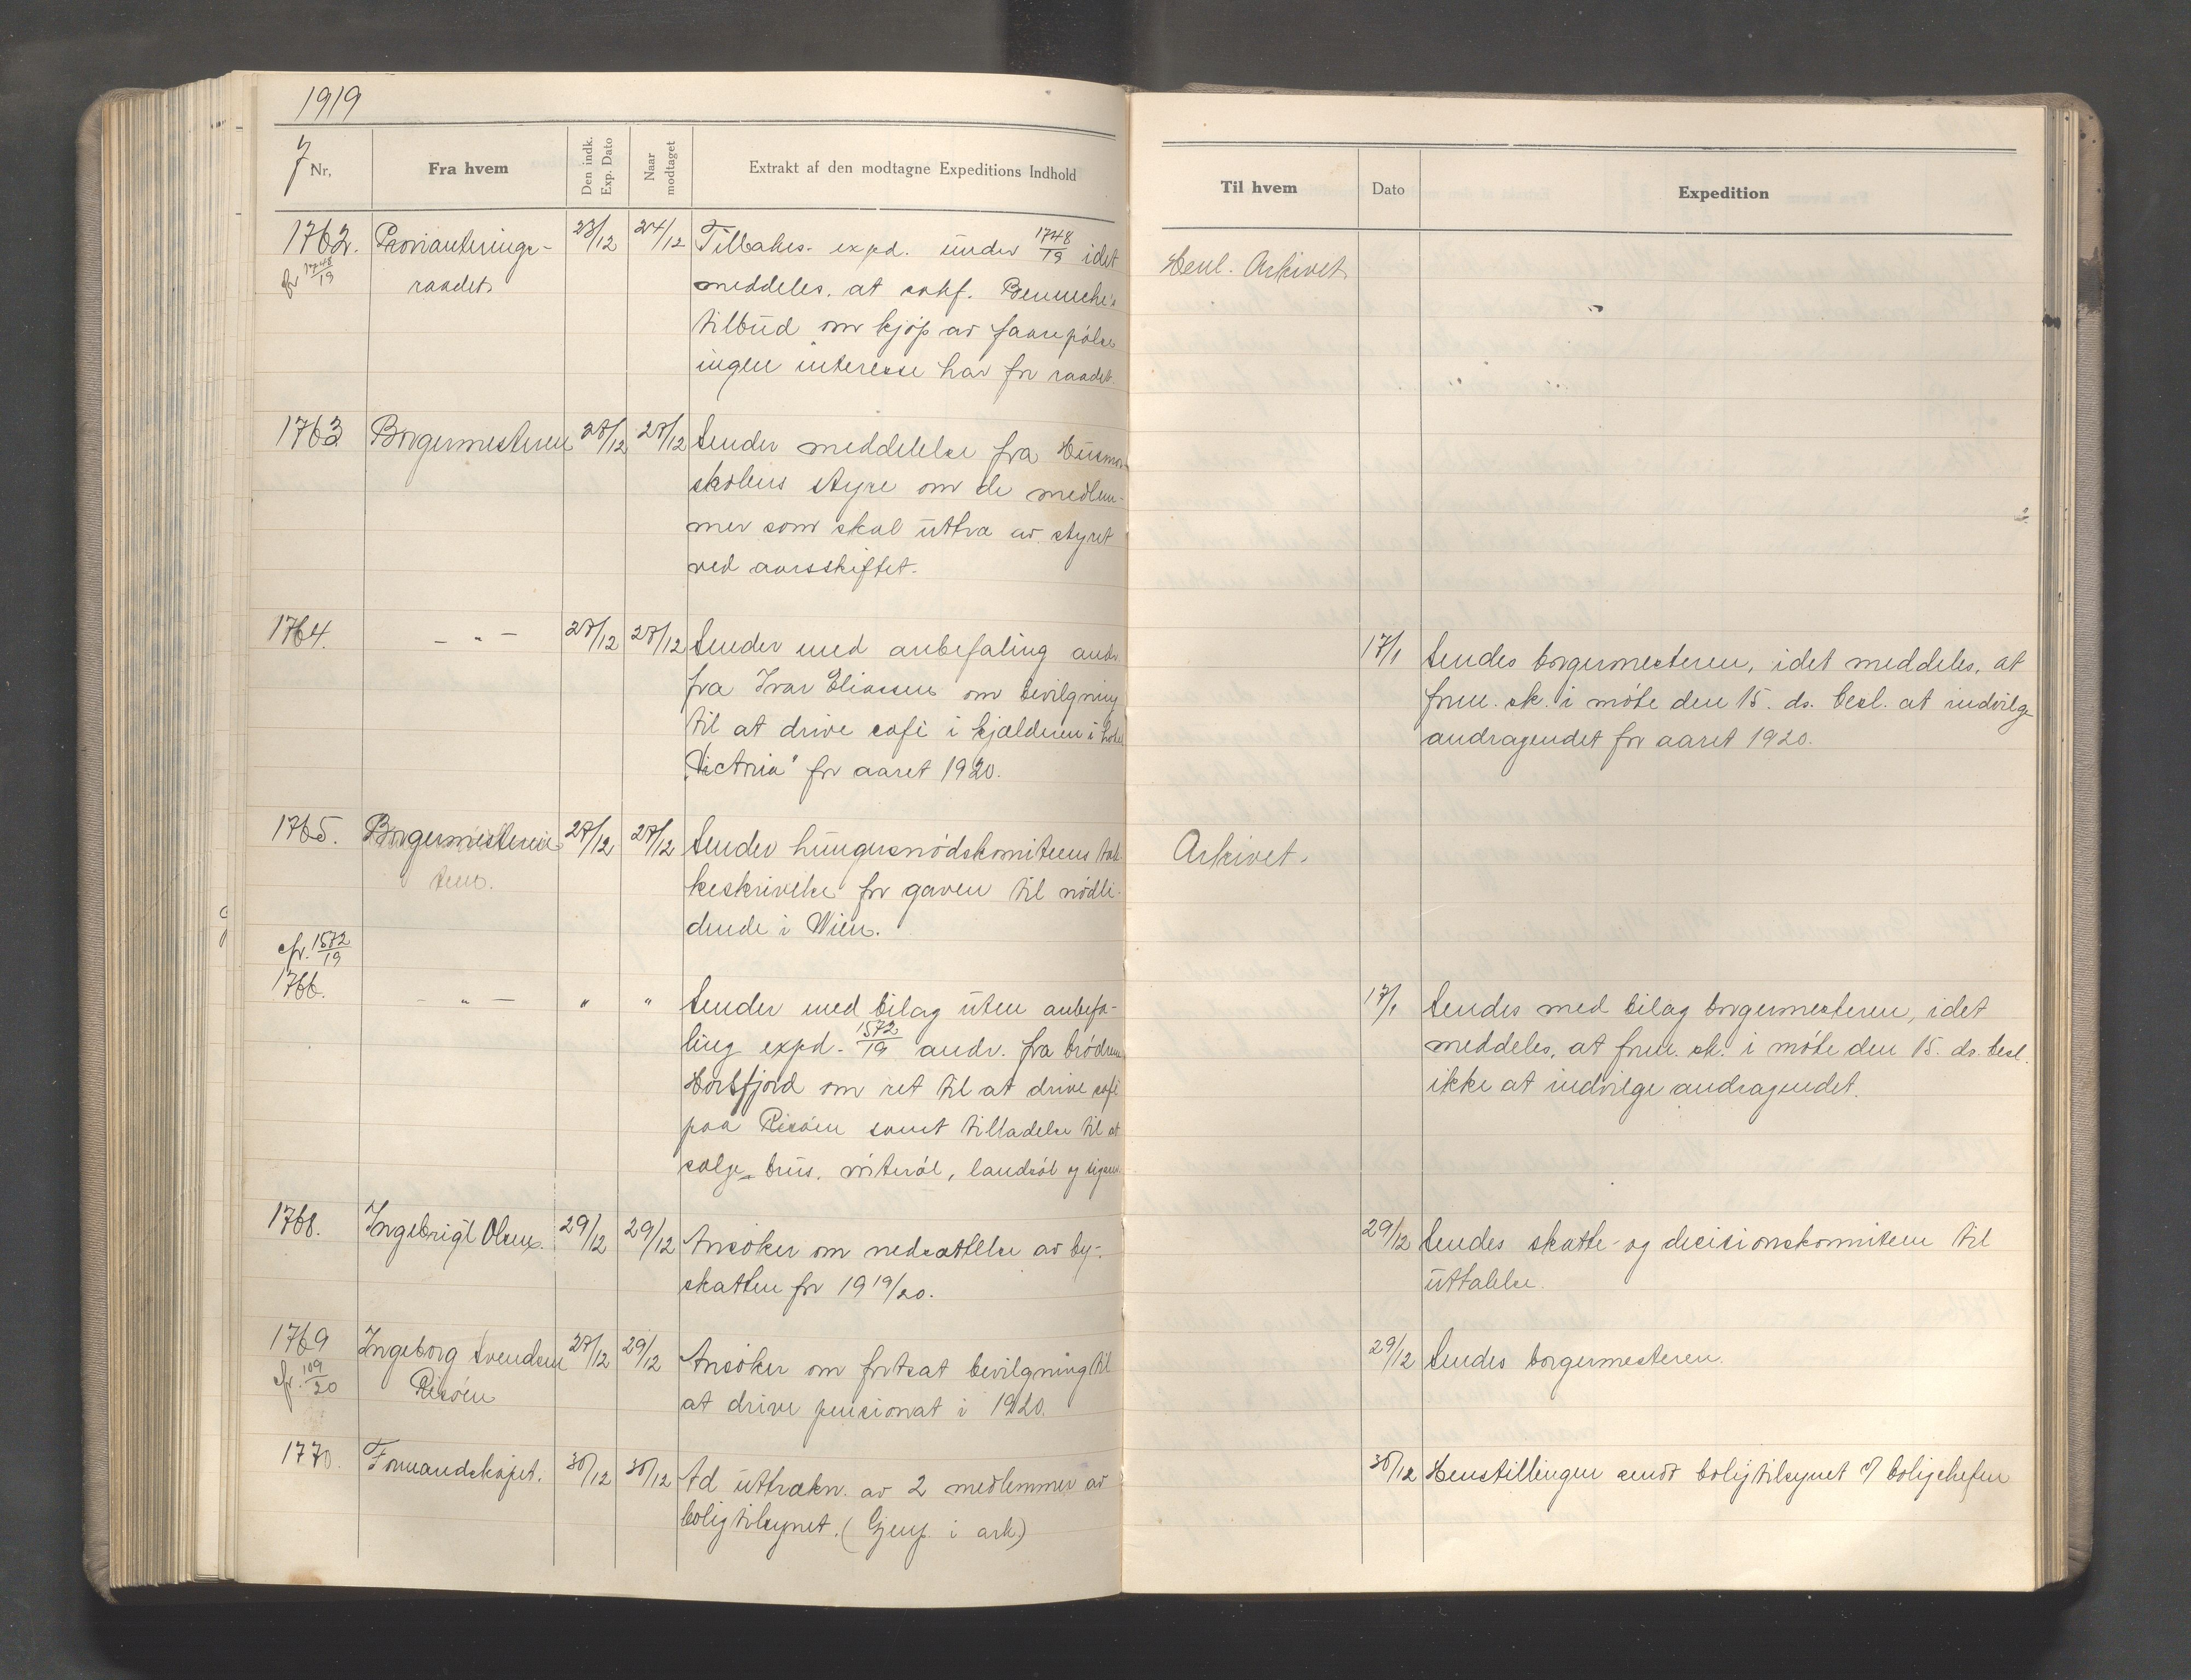 1919
J Nr.
Fra hvem
Den indk. Exp. Dato
Naar modtaget
Extrakt af den modtagne Expeditions Indhold
Til hvem
Dato
Expedition
1762. Provianterings- 23/12 24/12 Tilbakes. expd. under 1748/19 idet
cfr 1748/19 raadet meddeles, at sakf. tilbud
tilbud om kjøp av faarepølse
ingen interesse har for raadet.
Henl. Arkivet
1763 Borgermesteren 27/12 27/12 Sender meddelelse fra Husmor-
skolens styre om de medlem-
mer som skal uttra av styret
ved aarsskiftet.
1764. — „ — 27/12 27/12 Sender med anbefaling andr.
fra Ivar Eliassen om bevilgning
til at drive café i kjælderen i hotel
„Victoria" for aaret 1920.
17/1 Sendes borgermesteren, idet meddeles, at
form. sk. i møte den 15. ds. besl. at indvilge
andragendet for aaret 1920.
1765. Borgermesteren 27/12 27/12 Sender hungersnødskomiteens tak-
keskrivelse for gaven til nødli-
dende i Wien.
Arkivet.
cfr. 1572/19
1766. — „ — „ „ Sender med bilag uten anbefa-
ling expd. 1572/19 andr. fra brødrene
Hortsfjord om ret til at drive café
paa Risøen samt tilladelse til at
sælge brus, vørterøl, landsøl og sigarer
17/1 Sendes med bilag borgermesteren, idet
meddeles, at form. sk. i møte den 15. ds. besl.
ikke at indvilge andragendet.
1768. Ingebrigt Olsen. 29/12 29/12 Ansøker om nedsættelse av by-
skatten for 1919/20.
29/12 Sendes skatte- og decisionskomiteen til
uttalelse.
1769 Ingeborg Svendsen 27/12 29/12 Ansøker om fortsat bevilgning til
cfr. 109/20 Risøen at drive pensionat i 1920.
29/12 Sendes borgermesteren.
1770. Formandskapet. 30/12 30/12 Ad uttrækn. av 2 medlemmer av
boligtilsynet. (Gjenp. i ark.)
30/12 Henstillingen sendt boligtilsynet v/ boligchefen